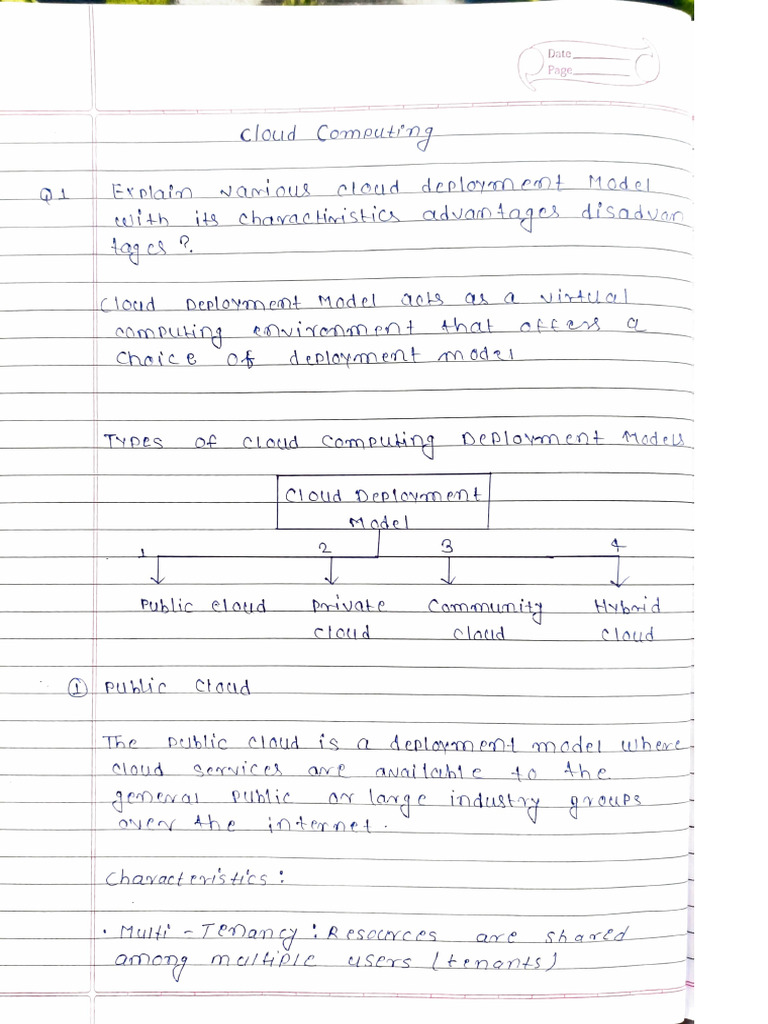 Date
Page
Cloud Computing
Q1 Explain various cloud deployment Model
with its charactiristics advantages disadvan
tages?.
Cloud Deployment Model acts as a virtual
computing environment that offers a
choice of deployment model
Types of cloud computing Deployment Models
Cloud Deployment
Model
1 2 3 4
Public cloud Private Community Hybrid
cloud cloud cloud
① Public Cloud
The public cloud is a deployment model where
cloud services are available to the
general public or large industry groups
over the internet.
Characteristics:
• Multi-Tenancy: Resources are shared
among multiple users (tenants)